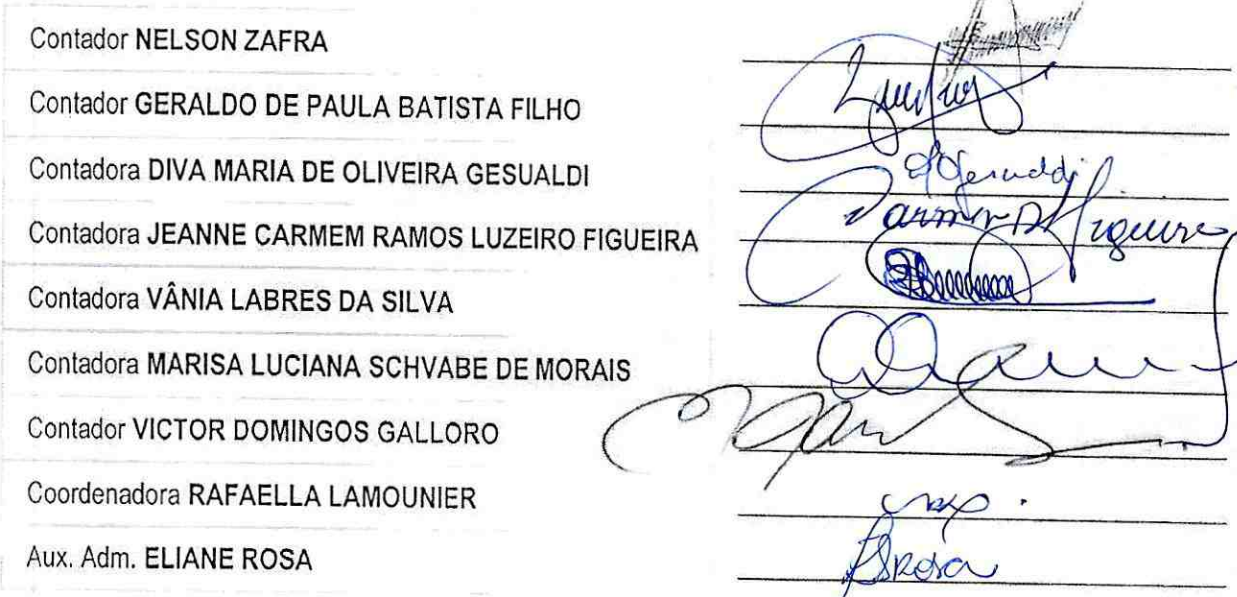 Contador NELSON ZAFRA
Contador GERALDO DE PAULA BATISTA FILHO
Contadora DIVA MARIA DE OLIVEIRA GESUALDI
Contadora JEANNE CARMEM RAMOS LUZEIRO FIGUEIRA
Contadora VÂNIA LABRES DA SILVA
Contadora MARISA LUCIANA SCHVABE DE MORAIS
Contador VICTOR DOMINGOS GALLORO
Coordenadora RAFAELLA LAMOUNIER
Aux. Adm. ELIANE ROSA